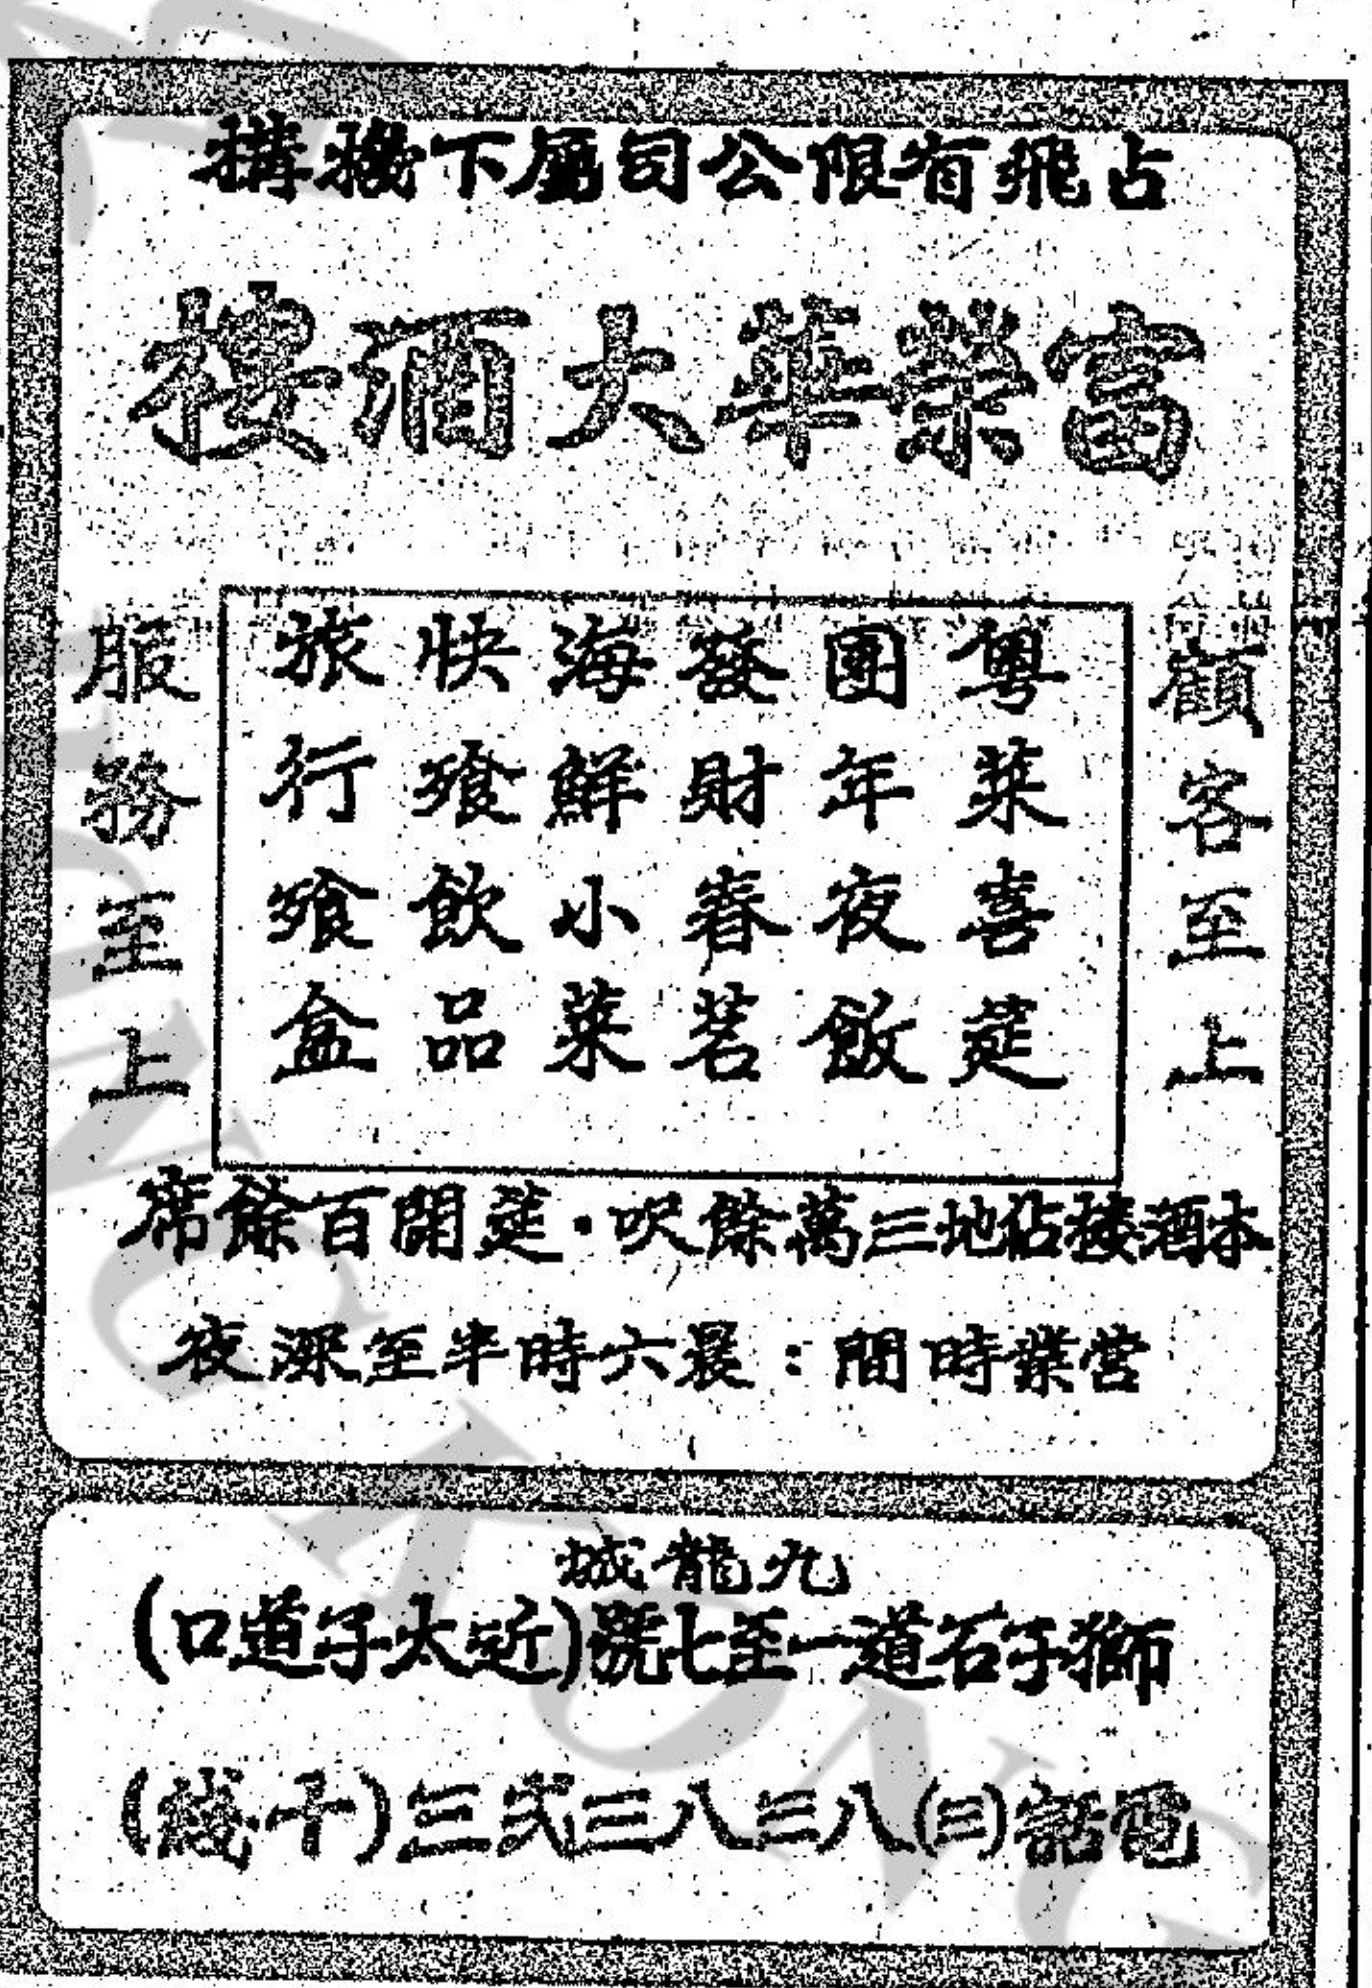 占飛有限公司屬下機構
富榮華大酒楼
顧客至上
粵菜喜筵
團年夜飯
發財春茗
海鮮小菜
快餐飲品
旅行餐盒
服務至上
本酒楼佔地三萬餘呎·筵開百餘席
營業時間：晨六時半至深夜
九龍城
獅子石道一至七號(近太子道口)
電話(三)八三八三弍三(十綫)
HONG KONG